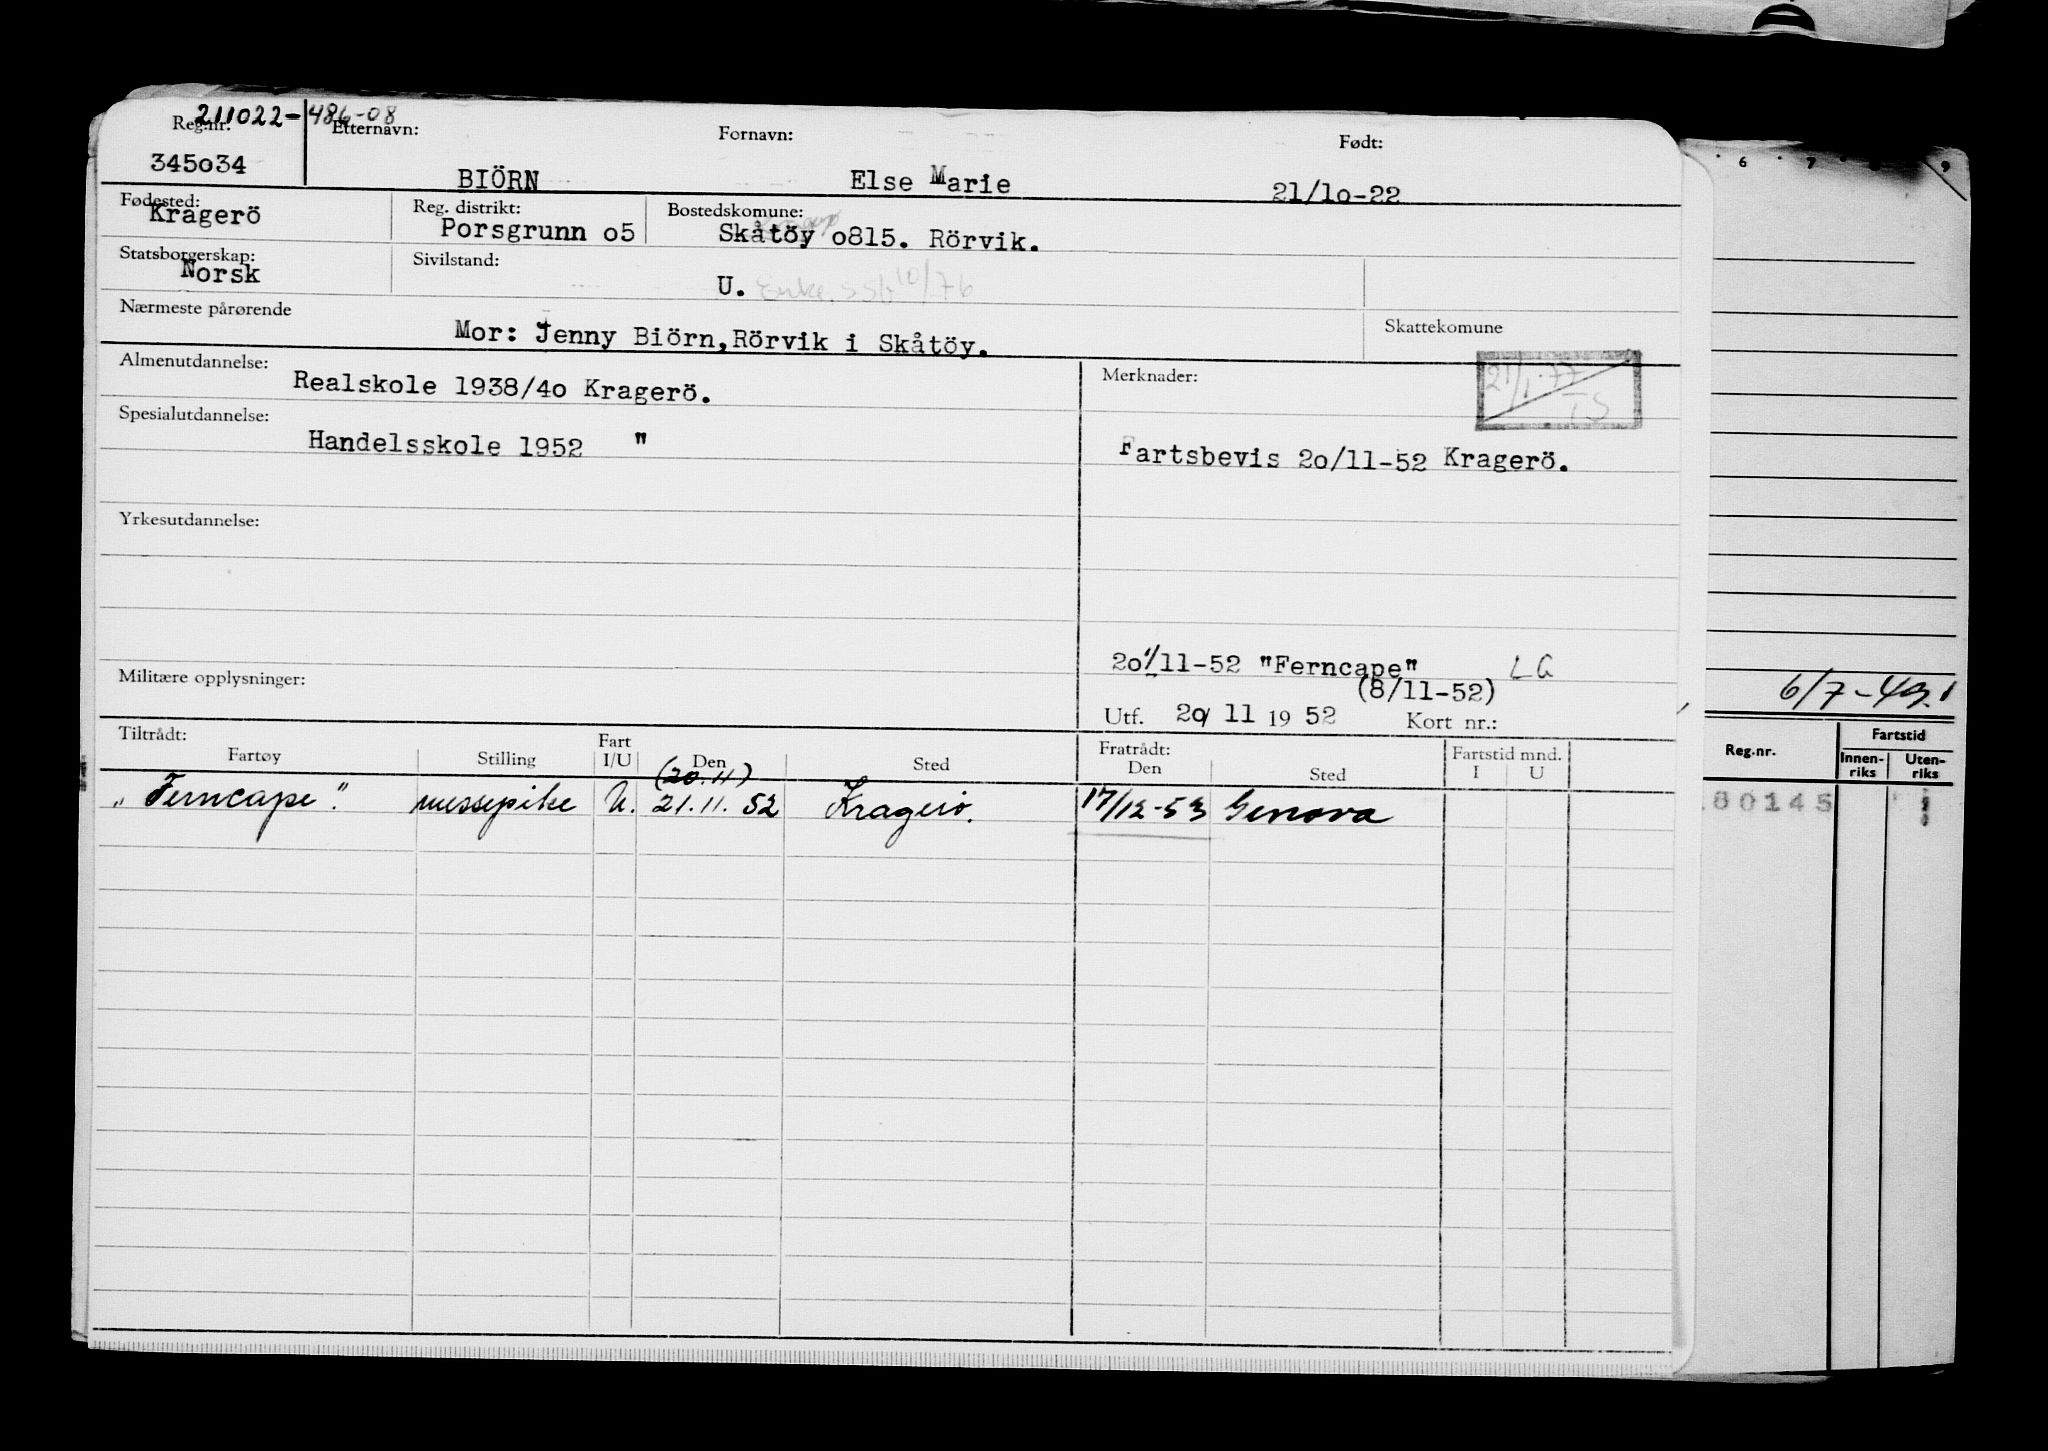 211022-486-08
Reg.nr. Etternavn: Fornavn: Født:
345034 BIÖRN Else Marie 21/10-22
Fødested: Reg. distrikt: Bostedskomune:
Kragerö Porsgrunn 05 Skåtöy 0815. Rörvik.
Statsborgerskap: Sivilstand:
Norsk U. Enke SSB 10/76
Nærmeste pårørende Skattekomune
Mor: Jenny Biörn, Rörvik i Skåtöy.
Almenutdannelse: Merknader:
Realskole 1938/40 Kragerö. 21/1.77
TS
Spesialutdannelse:
Handelsskole 1952 "
Fartsbevis 20/11-52 Kragerö.
Yrkesutdannelse:
20/11-52 "Ferncape" LG
Militære opplysninger: (8/11-52)
Utf. 20/ 11 19 52 Kort nr.:
Tiltrådt: Fart Fratrådt: Fartstid mnd.
Fartøy Stilling I/U Den Sted Den Sted I U
(20.11)
„Ferncape". messepike U. 21.11.52 Kragerö. 17/12-53 Genova
6 7 8 9
6/7-49.1
Reg.nr. Fartstid
Innen-riks Uten-riks
80145